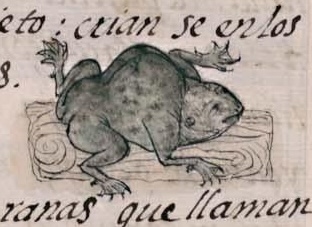 eto: crian se en los
s.
ranas que llaman